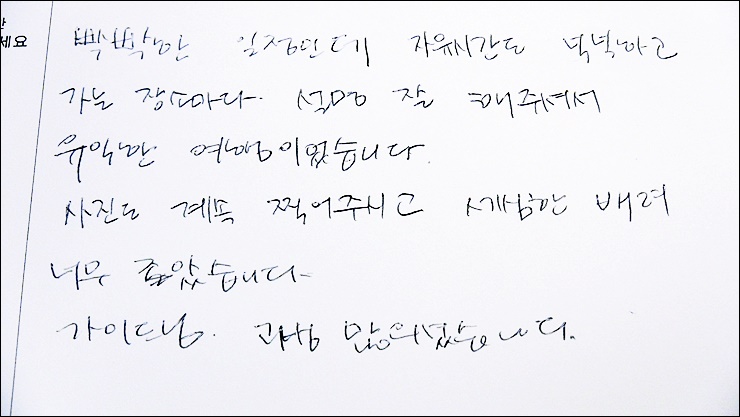 세요
빡빡한 일정인데 자유시간도 넉넉하고
가는 장소마다 설명 잘 해주셔서
유익한 여행이었습니다.
사진도 계속 찍어주시고 세심한 배려
너무 좋았습니다
가이드님. 고생 많으셨습니다.